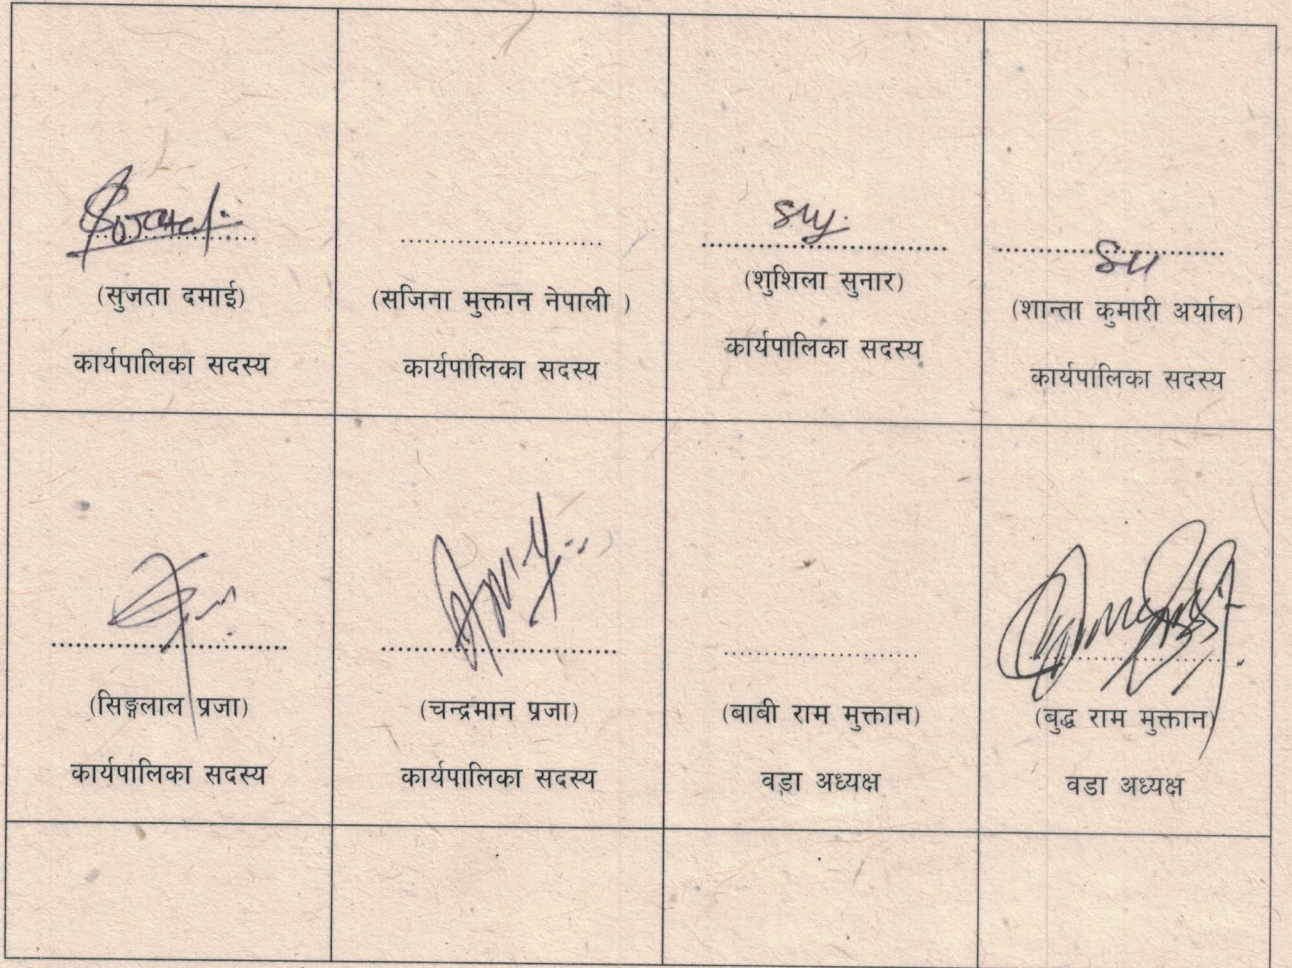 (सुजता दमाई)
कार्यपालिका सदस्य
(सजिना मुक्तान नेपाली )
कार्यपालिका सदस्य
(शुशिला सुनार)
कार्यपालिका सदस्य
(शान्ता कुमारी अर्याल)
कार्यपालिका सदस्य
(सिङ्गलाल प्रजा)
कार्यपालिका सदस्य
(चन्द्रमान प्रजा)
कार्यपालिका सदस्य
(बाबी राम मुक्तान)
वडा अध्यक्ष
(बुद्ध राम मुक्तान)
वडा अध्यक्ष